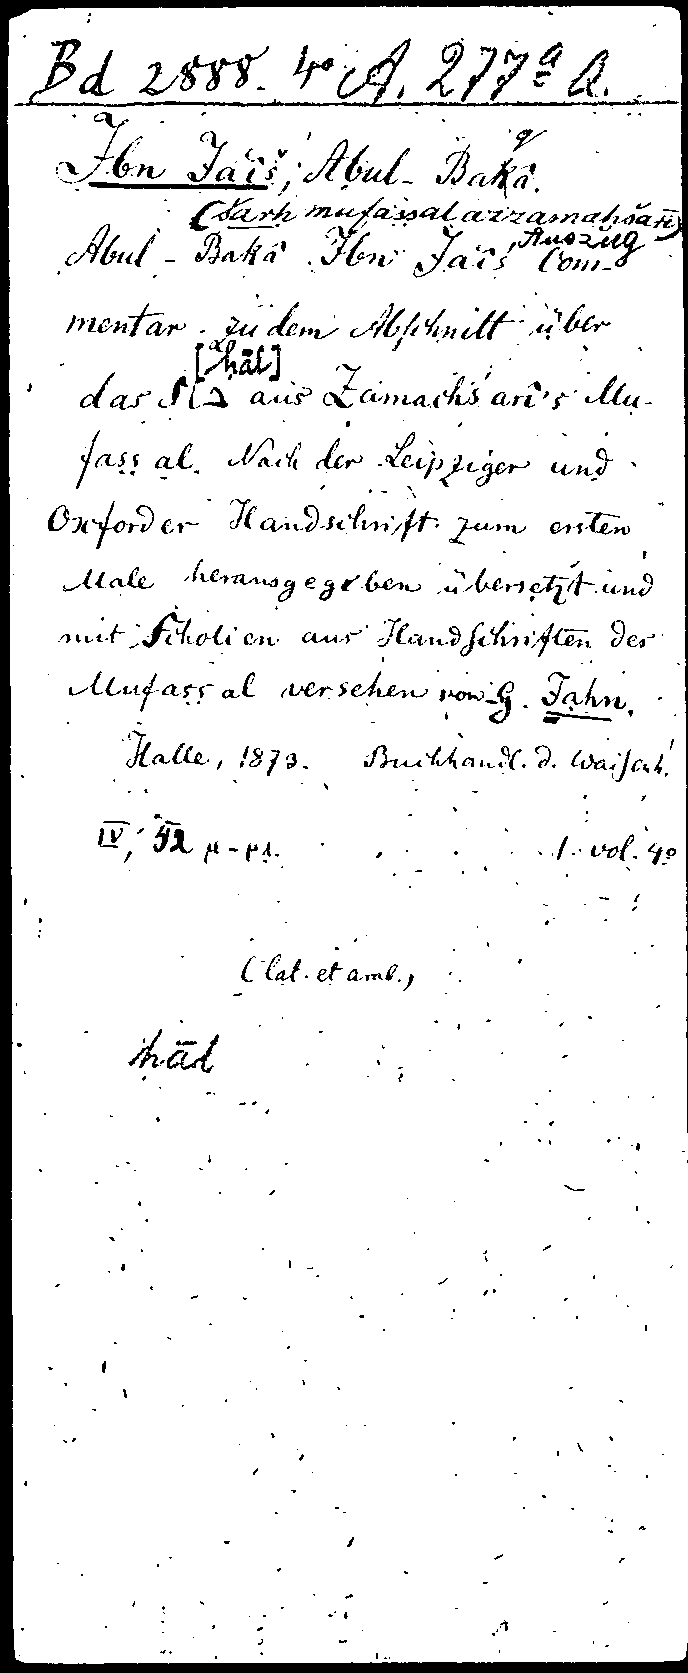 Bd 2888. 4o A. 277a a.
Ibn Jaîš, Abul-Bakâ. q
(Šarh mufaṣṣal azzamaḫšarī)
Auszug
Abul-Bakâ Ibn Jaîš' Com-
mentar zu dem Abschnitt über
[ḥāl]
das حال aus Zamachśarî's Mu-
faṣṣal. Nach der Leipziger und
Oxforder Handschrift zum ersten
Male herausgegeben übersetzt und
mit Scholien aus Handschriften des
Mufaṣṣal versehen von G. Jahn.
Halle, 1873. Buchhandl. d. Waisenh.
IV, 42 1. vol. 4o
(lat. et arab.)
ḥāl